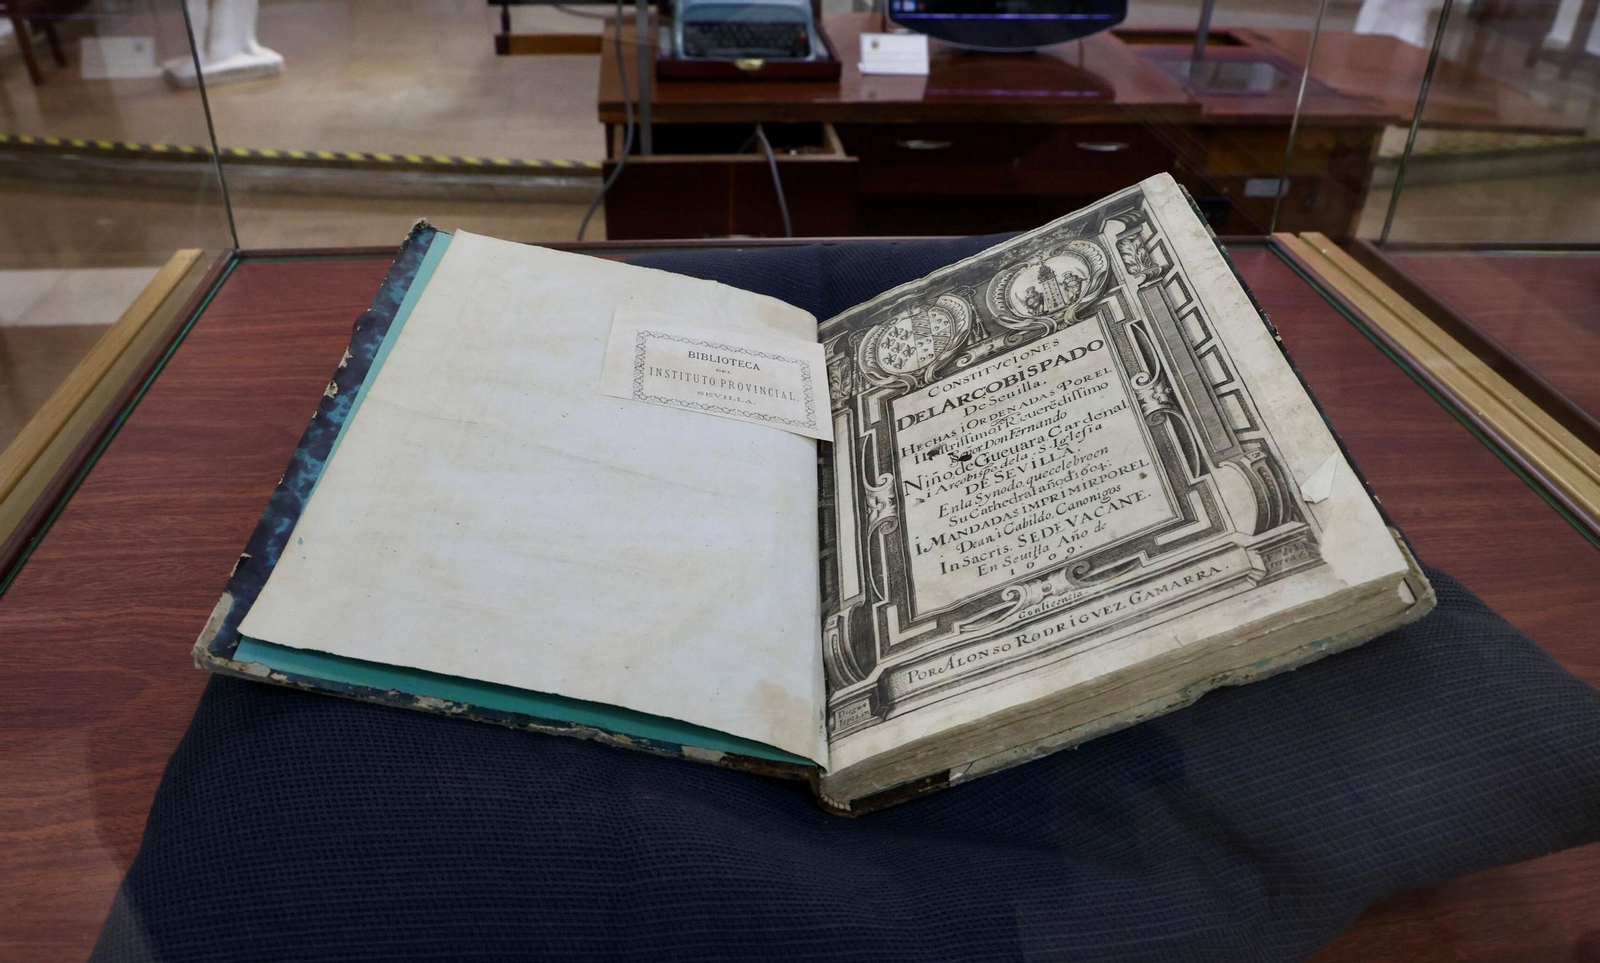 BIBLIOTECA
DEL
INSTITUTO PROVINCIAL.
SEVILLA.
CONSTITVCIONES
DEL ARCOBISPADO
De Seuilla.
HECHAS i ORDENADAS POR EL
Illustrissimo i R. uerēdissimo
Señor Don Fernando
Niño de Gueuara Cardenal
i Arçobispo de la . S. Iglesia
DE SEVILLA.
En la Synodo que celebro en
Su Cathedral año dē 1604.
i MANDADAS iMPRIMIR POR EL
Dean i Cabildo, Canonigos
In Sacris. SEDE VACANTE.
En Seuilla Año de
1609.
Con licencia.
POR ALONSO RODRiGVEZ GAMARRA.